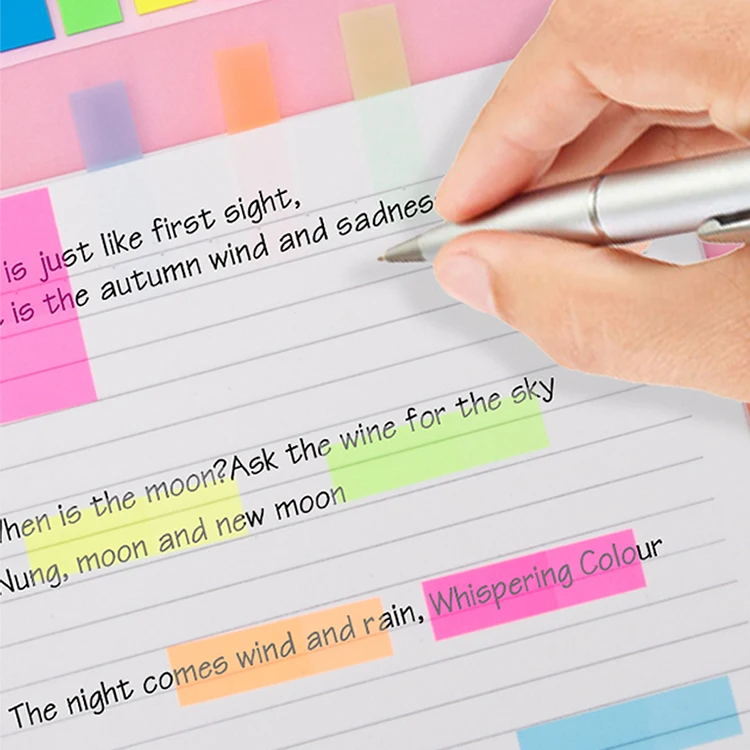 is just like first sight,
is the autumn wind and sadnes
is the moon?Ask the wine for the sky
Nung, moon and new moon
The night comes wind and rain, Whispering Colour